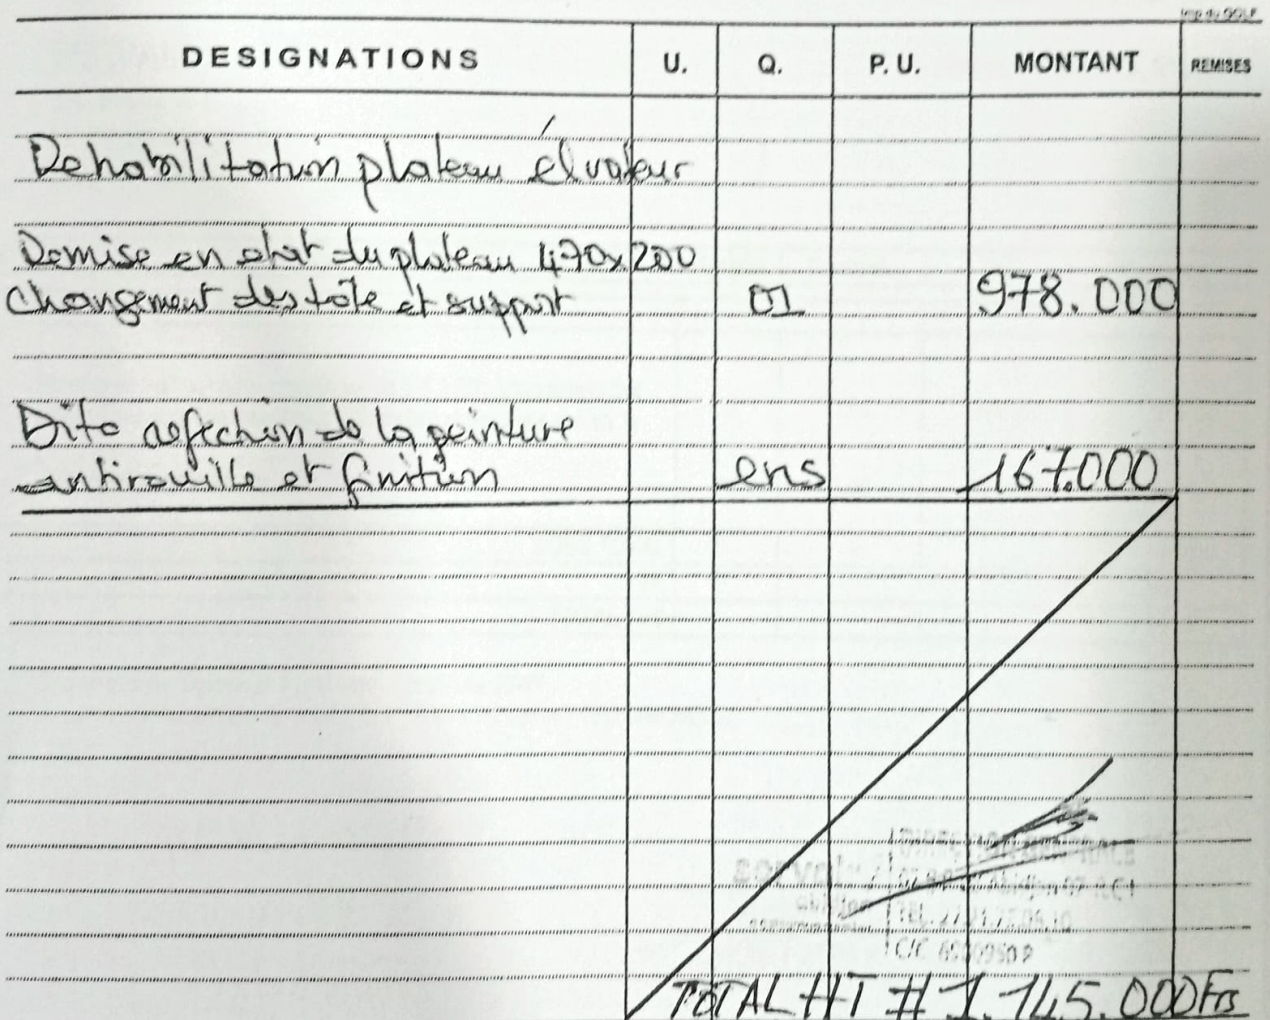 Imp du GOLF
DESIGNATIONS U. Q. P. U. MONTANT REMISES
Rehabilitation plateau élvateur
Remise en etat du plateau 470x200
Changement des tôle et support 01 978.000
Dito refection de la peinture
antirouille et finition ens 167.000
Abidjan
C/C
TOTAL HT # 1.145.000 Frs